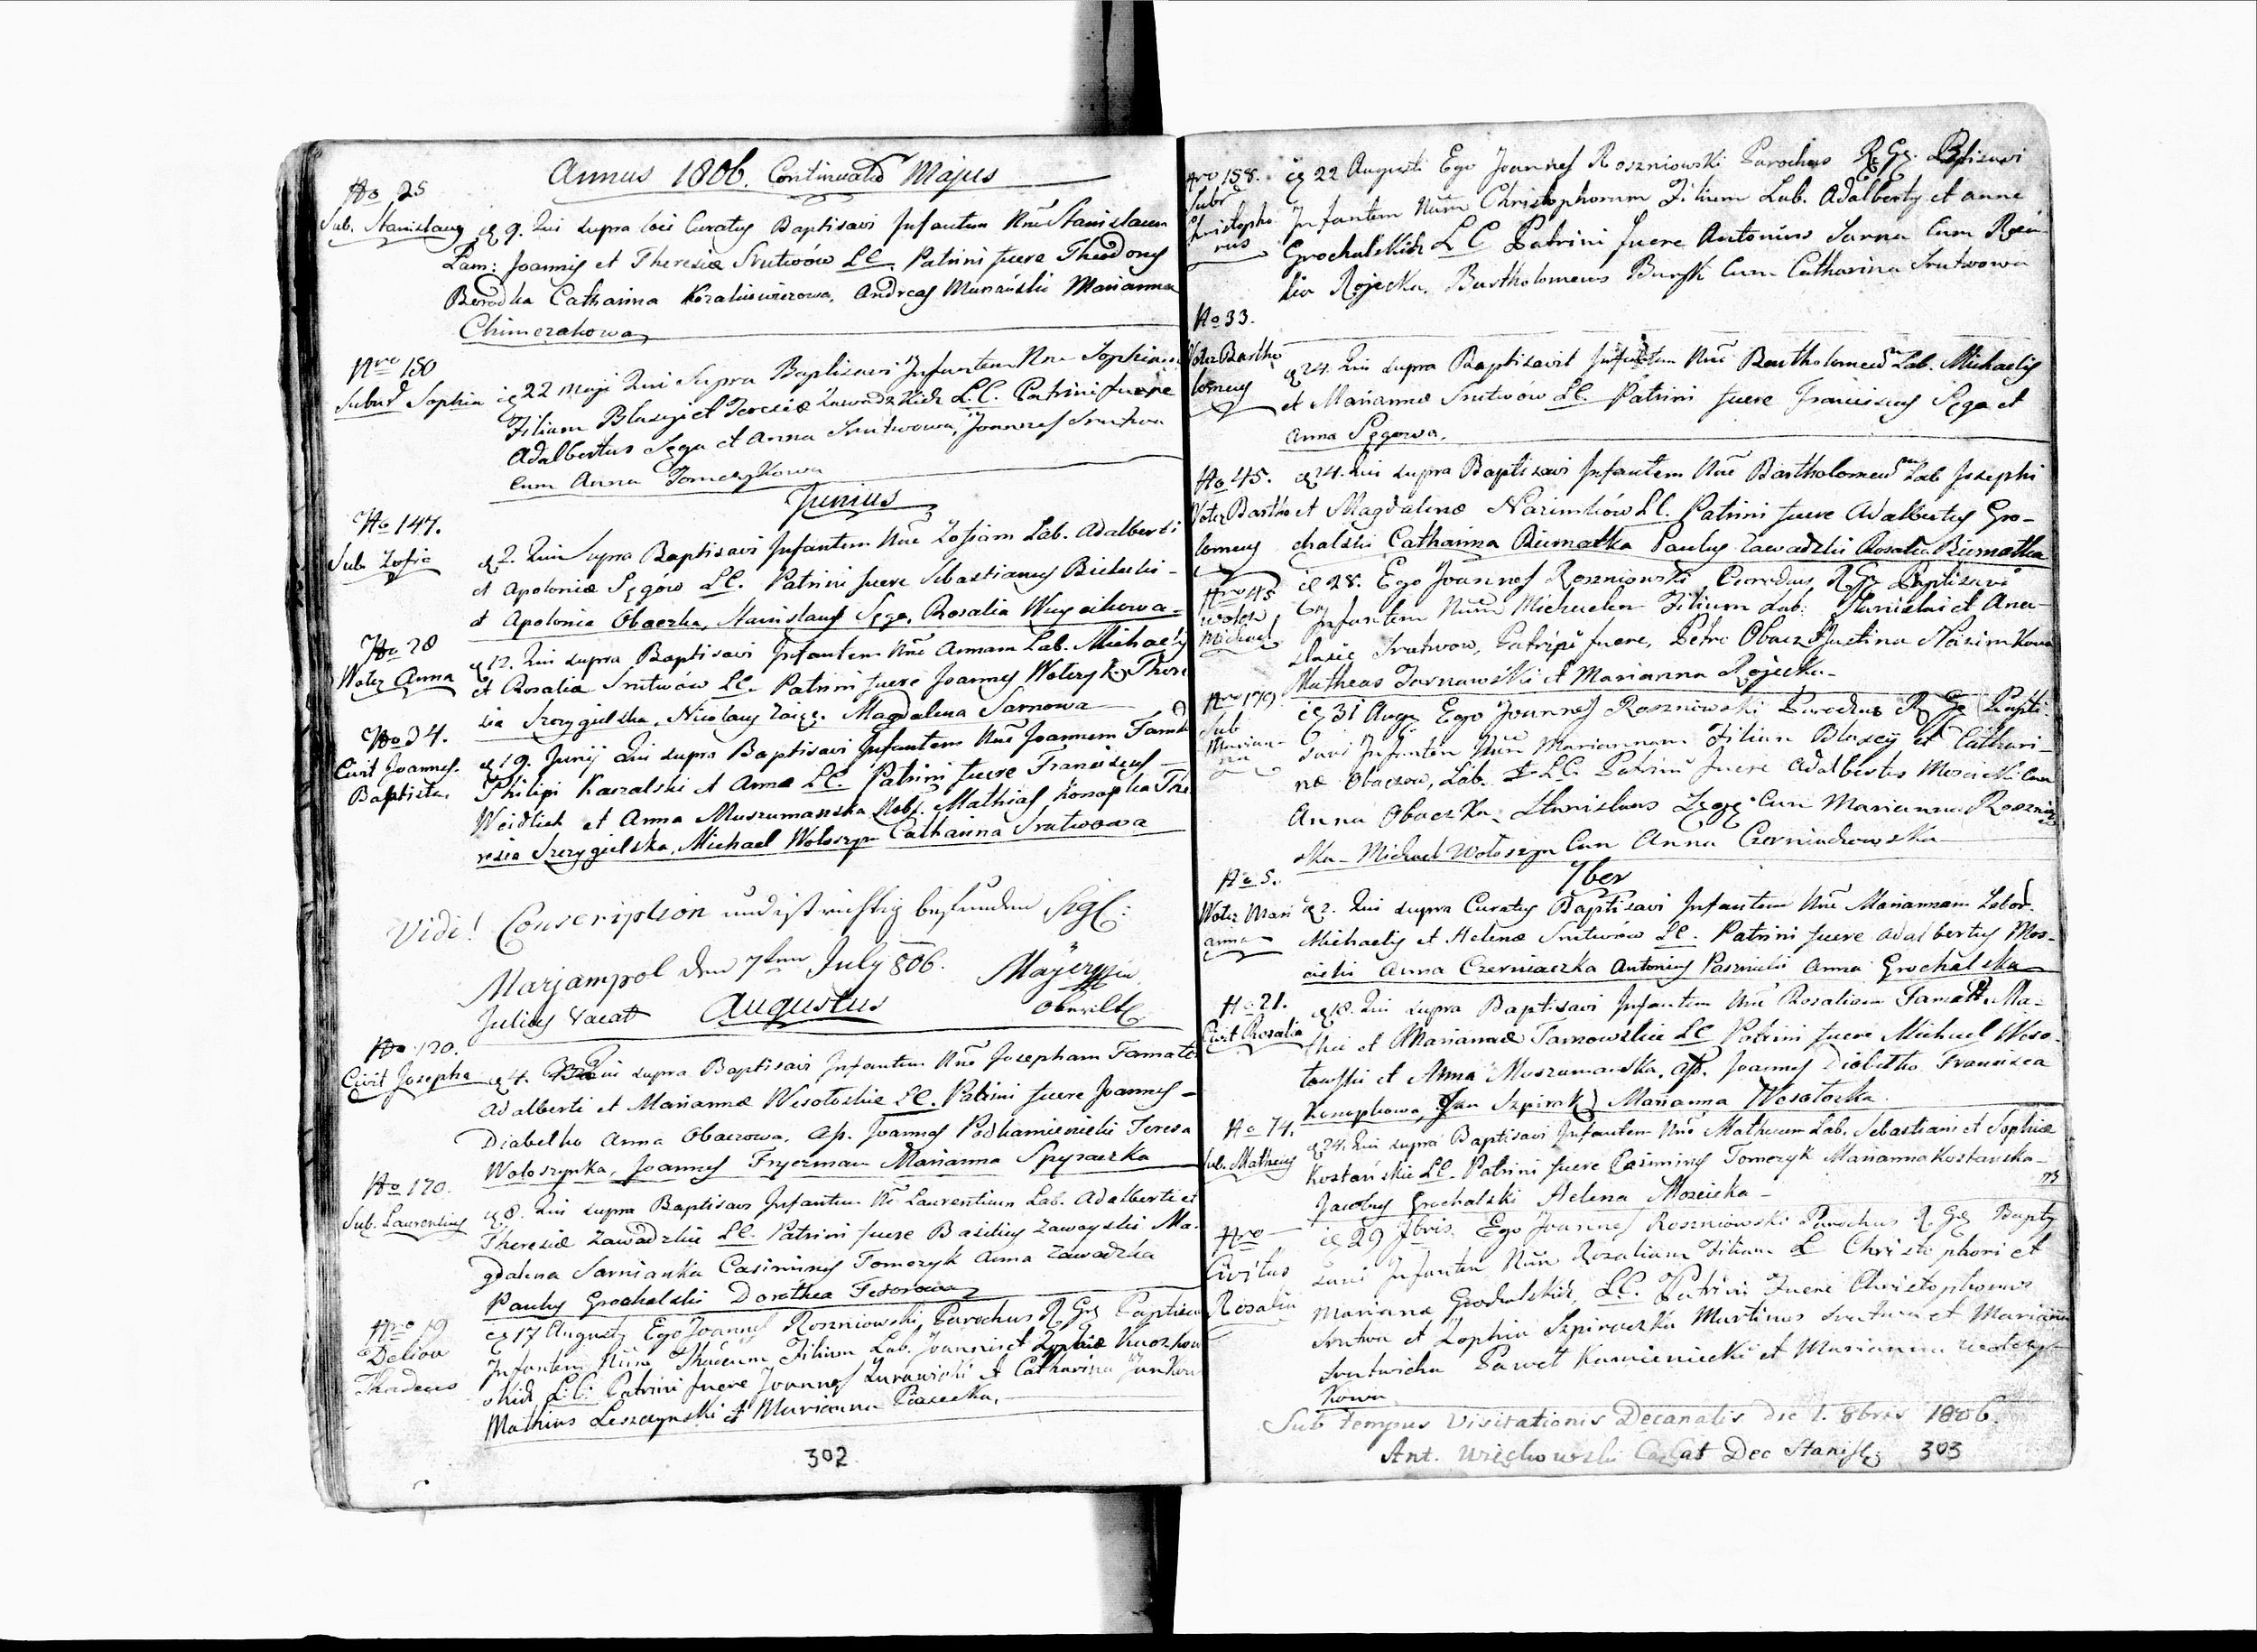 Annus 1806. Continuatio Majus
No 25
Sub. Stanislaus
q 9. Qui supra loci Curatus Baptisavi Infantem Nne Stanislaum
Lam: Joannis et Theresiæ Srutwów LC. Patrini fuere Theodorus
Borodka Catharina Koraluwiczowa, Andreas Murański Marianna
Chimczakowa
Nro 150
Suburb Sophia
22 Maji Qui Supra Baptisavi Infantem Nne Sophiam
Filiam Blasy et Teresiæ Zawadzkich L.C. Patrini fuere
Adalbertus Sęga et Anna Srutwowa, Joannes Srutwa
cum Anna Tomczykowa
Junius
No 147.
Sub Zofia
q 2. Qui Supra Baptisavi Infantem Nne Zofiam Lab. Adalberti
et Apoloniæ Sęgów LC. Patrini fuere Sebastianus Bielecki
et Apolonia Obaczka, Stanislaus Sęga, Rosalia Wuycikowa
No 28
Wotez Anna
q 12. Qui supra Baptisavi Infantem Nne Annam Lab. Michaelis
et Rosaliæ Srutwów LC. Patrini fuere Joannes Woteryk There
sia Szczygielska, Nicolaus Zaięc. Magdalena Sarnowa
No 34.
Civit Joannes.
Baptista.
q 19. Junij Qui supra Baptisavi Infantem Nne Joannem Famat
Philipi Kaczalski et Annæ LC. Patrini fuere Franciscus
Weidlich et Anna Muszumanska Nobs. Mathias Konopka The
resia Szczygielska, Michael Wołoszyn Catharina Srutwowa
Vidi! Conscription und ist richtig befunden Sigl:
Marjampol den 7ten July 806. Mayer
Julius Vacat Augustus
No 120.
Civit Josepha
q 4. Qui supra Baptisavi Infantem Nne Josepham Famato
Adalberti et Mariannæ Wesołoskie LC. Patrini fuere Joannes
Diabelko Anna Obaczowa, as. Joannes Podkamieniecki Teresa
Wołoszynka, Joannes Fryerman Marianna Spyraczka
No 170.
Sub. Laurentius
q 8. Qui supra Baptisavi Infantem Ne Laurentium Lab. Adalberti et
Theresiæ Zawadzkie LC. Patrini fuere Basilius Zawoyski Ma-
gdalena Sarnianka Casimirus Tomczyk Anna Zawadzka
Paulus Grochalski Dorothea Fedorowa
Nro 19
Deliou
Thadeus
17 Augusty Ego Joannes Roszniowski Parochus R. Gr. Baptisavi
Infantem Nne Thadeum Filium Lab. Joannis et Zophiæ
skich L.C. Patrini fuere Joannes Zurawiski et Catharina
Mathias Leszczynski et Marianna Piasecka.
302
Nro 158.
Subr
Christopho
rus
22 Augusti Ego Joannes Roszniowski Parochus R. Gr. Bptisavi
Infantem Nne Christophorum Filium Lab. Adalberty et Anne
Grochalskich LC Patrini fuere Antonius Sarna Cum Roza-
lia Rojecka, Bartholomeus Buryk Cum Catharina Srutwowa
No 33.
Wotez Bartho
lomeus
q 24. Qui supra Baptisavit Infantem Nne Bartholomeum Lab. Michaelis
et Mariannæ Srutwów LC. Patrini fuere Franciscus Sęga et
Anna Sęgowa.
No 45.
Wotez Bartho
lomeus
q 24. Qui supra Baptisavi Infantem Nne Bartholomeum Lab Josephi
et Magdalenæ Nazimków LC. Patrini fuere Adalbertus Gro-
chalski Catharina Biernatka Paulus Zawadzki Rosalia Biernatka
Nro 45
Wotez
Michael
28. Ego Joannes Roszniowski Parochus R. Gr. Baptizavi
Infantem Nne Michaelem Filium Lab: Stanislai et Ana-
stasię Srutwow, Patrini fuere, Petro Obacz Justina Nazimkowa
Matheas Tarnawski et Marianna Rojecka
Nro 179.
Sub
Marian-
na
31 Aug Ego Joannes Roszniowski Parochus R. Gr. Bapti-
savi Infantem Nne Mariannam Filiam Blasey et Cathari-
næ Obaczow, Lab. LC. Patrini fuere Adalbertus Moscicki Cum
Anna Obaczka, Stanislaus Sęga Cum Marianna Roszniow
ska Michael Wołoszyn Cum Anna Czerniachowska
7ber
No 5.
Wotez Mari
anna
q 2. Qui supra Curatus Baptisavi Infantem Nne Mariannam Labor.
Michaelis et Helenæ Srutwów LC. Patrini fuere Adalbertus Mos-
cicki Anna Czerniaczka Antonius Paznicki Anna Grochalska
No 21.
Civit Rosalia
q 18. Qui supra Baptisavi Infantem Nne Rosaliam Famatt Ma-
thei et Mariannæ Tarnowskie LC Patrini fuere Michael Weso-
łowski et Anna Muszumanska, as. Joannes Diabelko Francisca
Konopkowa, Jan Szpirak Marianna Wesołoska.
No 74.
Sub. Matheus
q 24. Qui supra Baptisavi Infantem Nne Matheum Lab. Sebastiani et Sophiæ
Kostańskie LC. Patrini fuere Casimirus Tomczyk Marianna Kostanska
Jacobus Grochalski Helena Moscicka
Nro
Civitus
Rosalia
29 7bris Ego Joannes Roszniowski Parochus R. Gr. Bapty
zavi Infantem Nne Rozaliam Filiam L Christophori et
Mariana Grochalskich, LC. Patrini Fuere Christophorus
Srutwa et Zophia Szpiraczka Martinus Srutwa et Marianna
Srutwicha Paweł Kamieniecki et Marianna Woteryk
kowa
Sub tempus Visitationis Decanalis die 1. 8bris 1806.
Ant. Więckowski Dec Stanisl:
303